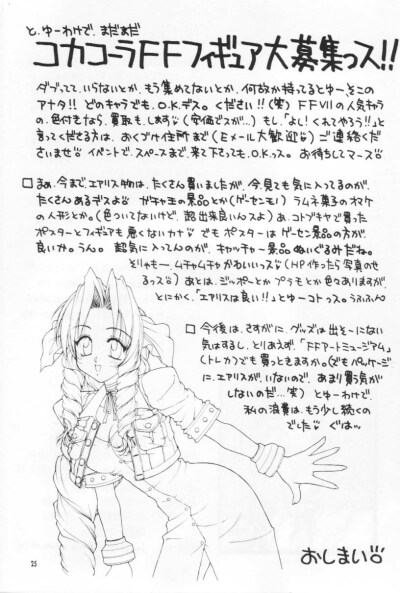 と、ゆーわけで、まだまだ
コカコーラFFフィギュア大募集っス!!
ダブってて、いらないとか、もう集めてないとか、何故か持ってるとゆーそこの
アナタ!! どのキャラでも、O.K.デス。ください!!(笑) FFⅦの人気キャラ
の、色付きなら、買取も、します(安価でスが…) もし、「よし! くれてやろう!!」と
言ってくださる方は、おくづけ住所まで(Eメール大歓迎)ご連絡くだ
さいませ イベントで、スペースまで、来て下さっても、O.K.っス。お待ちしてマース
□まぁ、今まで、エアリス物は、たくさん買いましたが、今、見ても気に入ってるのが、
たくさんあるデスよ ガチャ玉の景品とか(ゲーセンモノ) ラムネ菓子のオマケ
の人形とか。(色ついてないけど、超出来良いんスよ) あ、コトブキヤで買った
ポスターとフィギュアも悪くないカナ でもポスターはゲーセン景品の方が、
良いかも。うん。超気に入ってんのが、キャッチャー景品ぬいぐるみだね。
そりゃもー、ムチャムチャかわいいっス(HP作ったら写真のせ
るっス) あとは、ジッポーとかプラモとか色々ありますが、
とにかく、「エアリスは良い!!」とゆーコトっス。うふふん
□今後は、さすがに、グッズは出そーにない
気はするし、とりあえず、「FFアートミュージアム」
(トレカ)でも買っときますか。(でもパッケージ
に、エアリスが、いないので、あまり買う気が
しないのだ…笑) とゆーわけで、
私の消費は、もう少し続くの
でした ぐはっ
おしまい
25